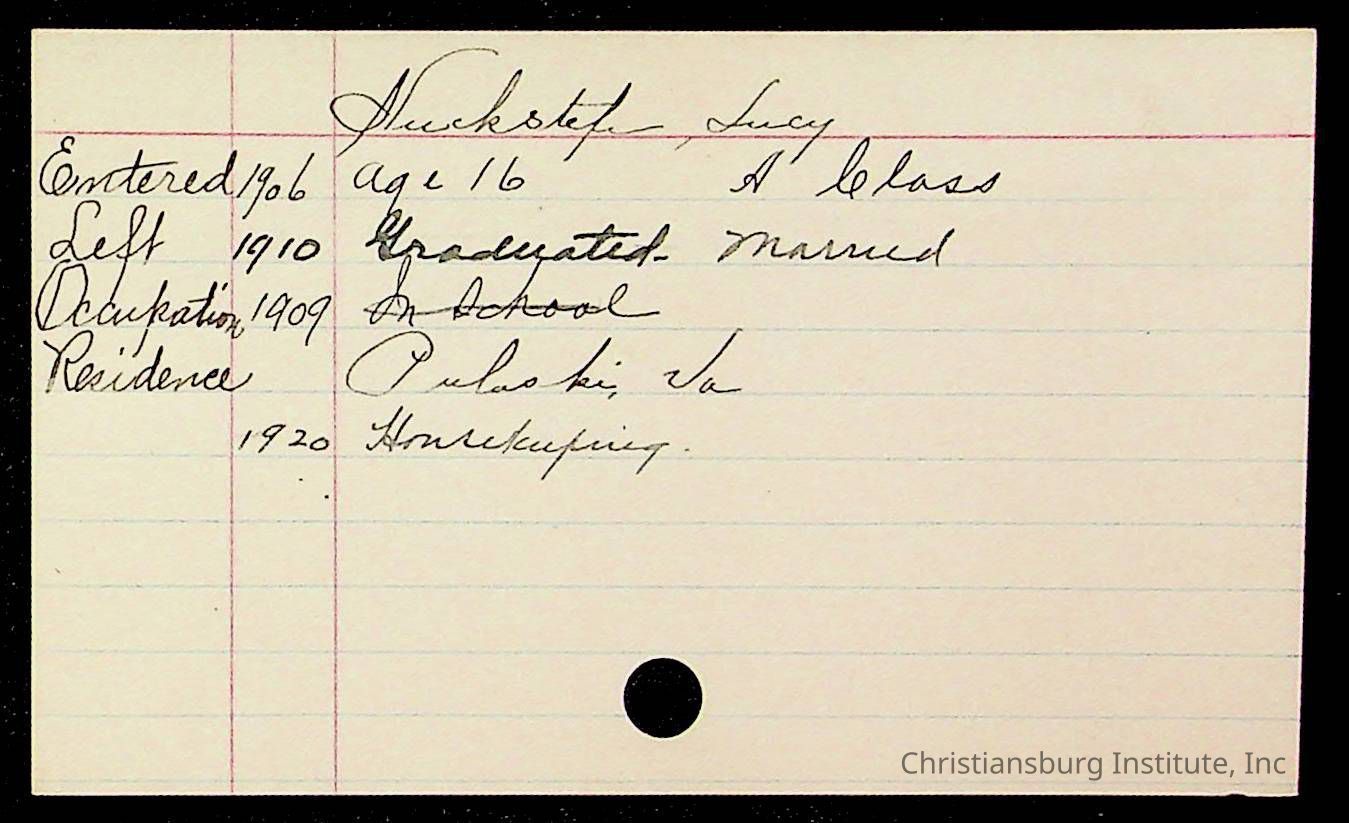 Huckstep, Lucy
Entered 1906 age 16 A Class
Left 1910 Graduated- Married
Occupation 1909 In School
Residence Pulaski, Va
1920 Housekeeping.
Christiansburg Institute, Inc